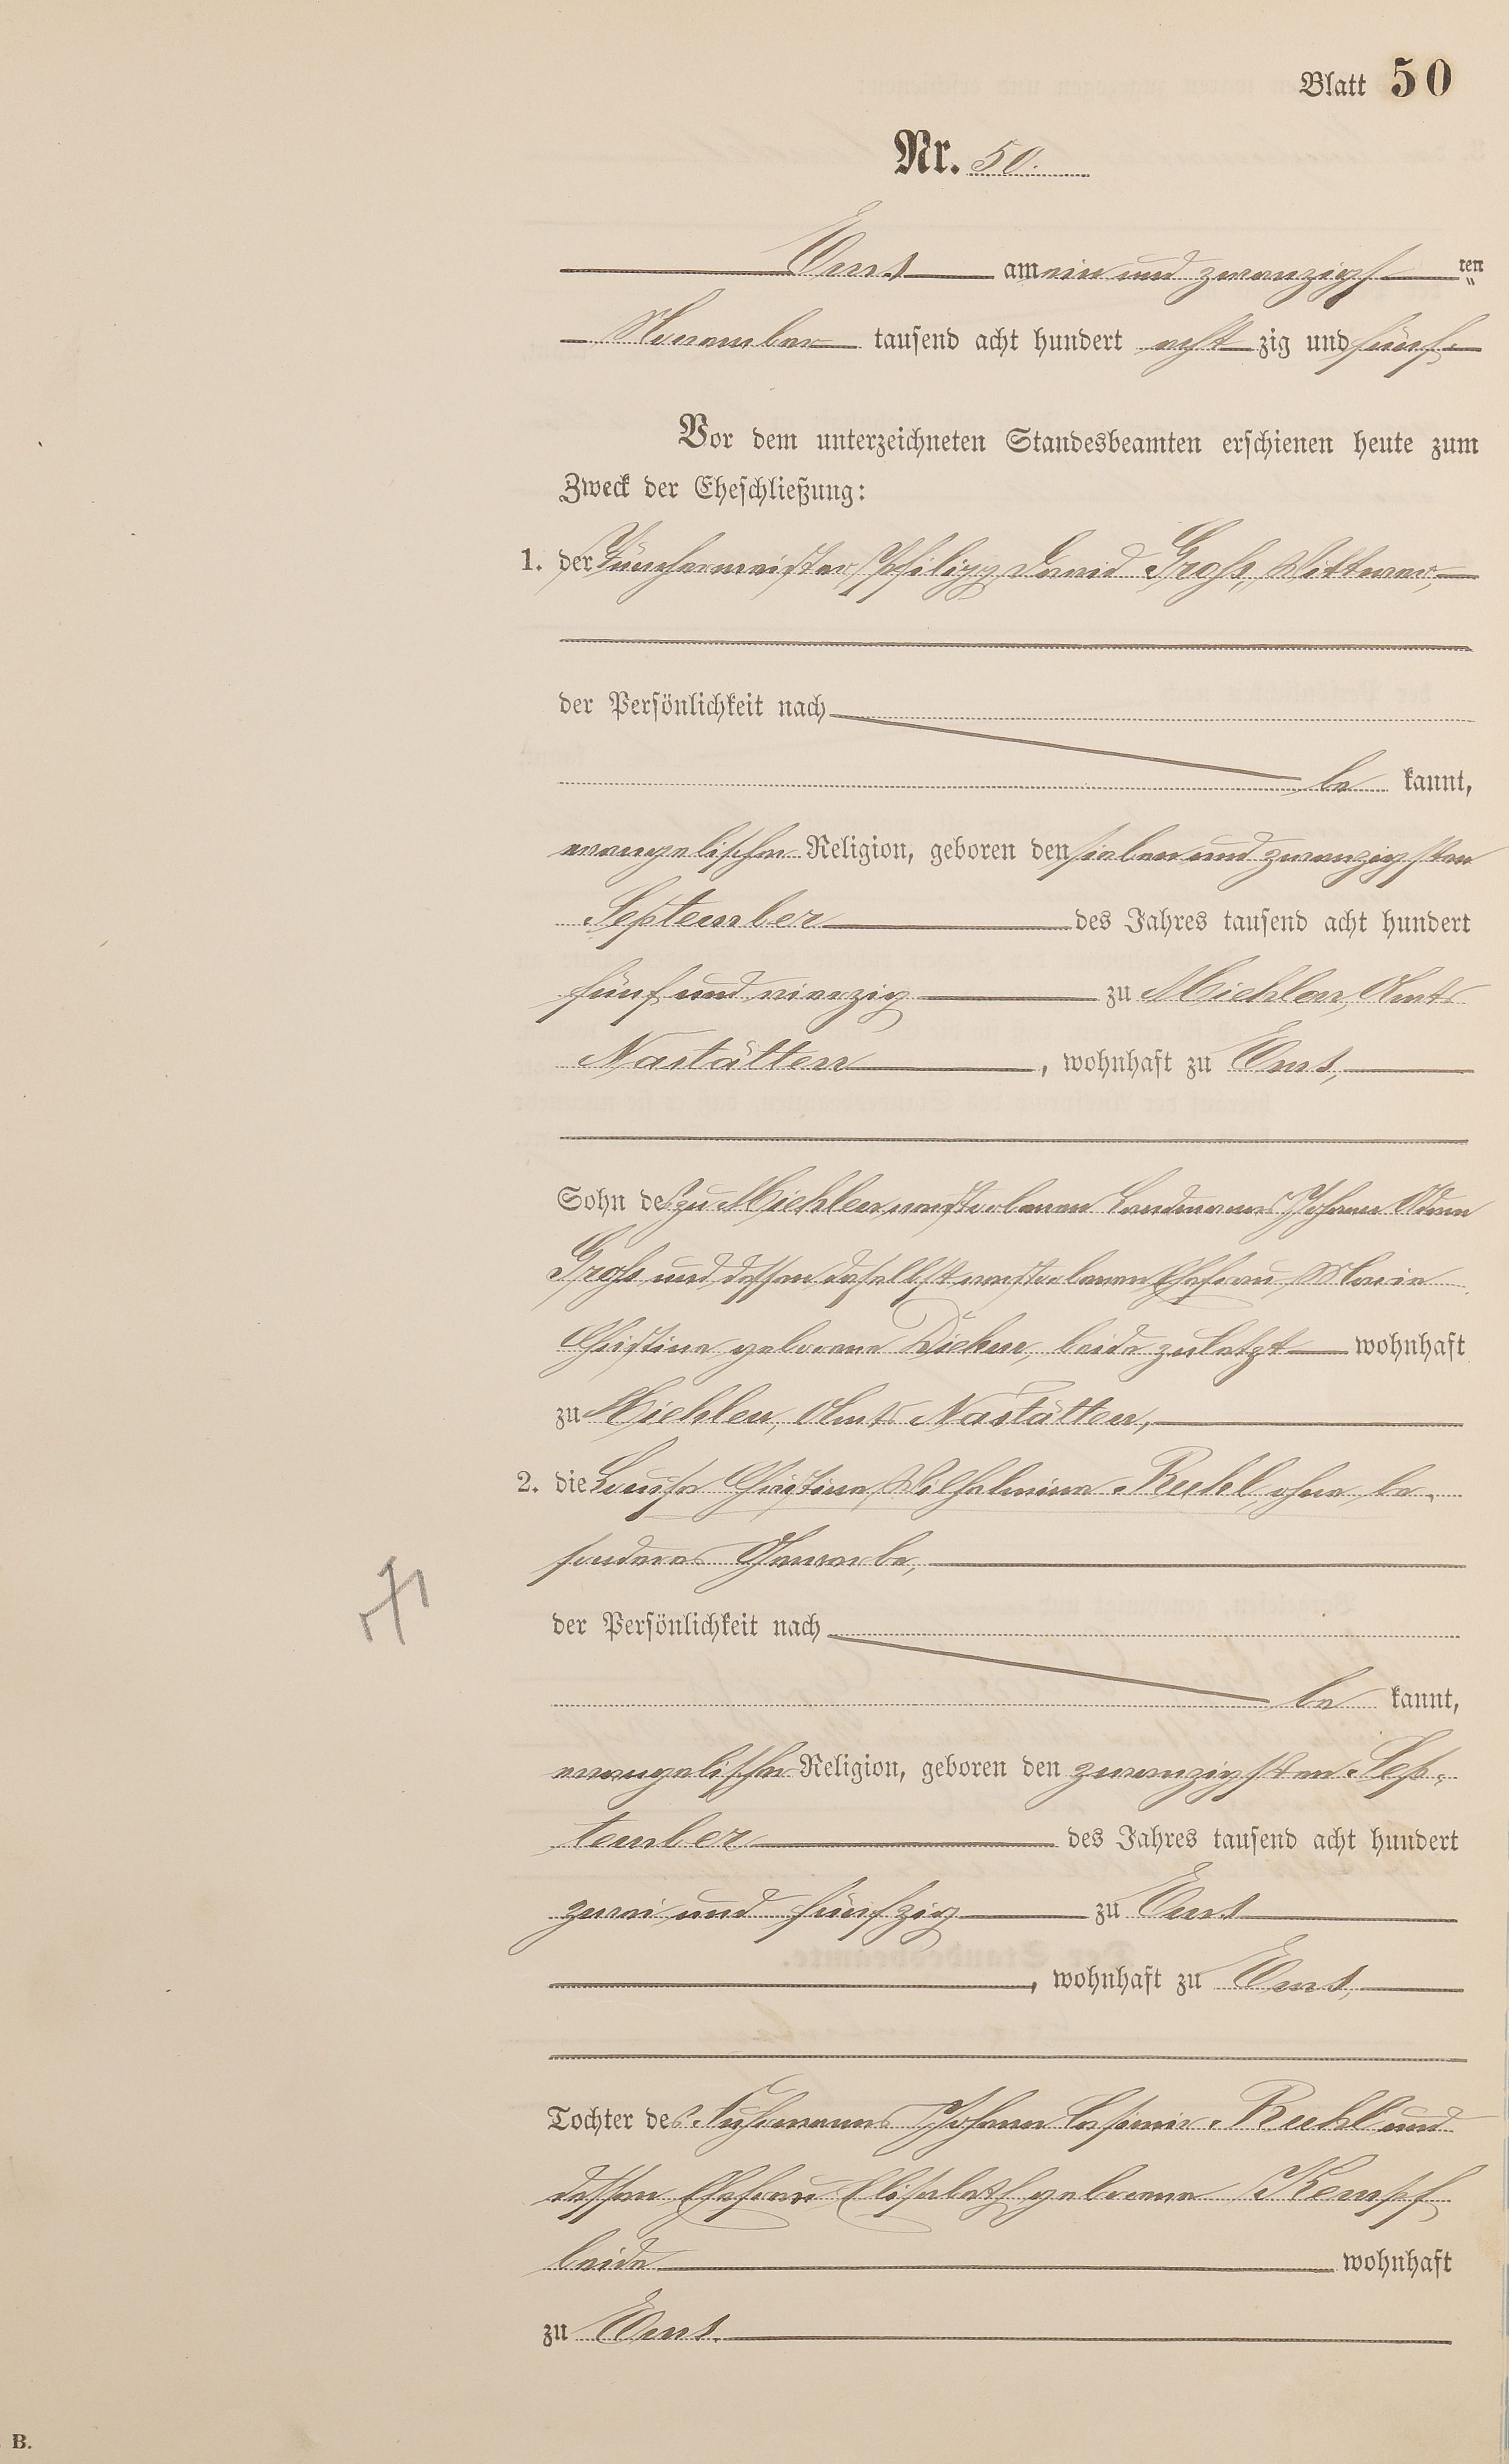 Blatt 50
Nr. 50.
Ems am ein und zwanzigsten
November tausend acht hundert achtzig und fünf.
Vor dem unterzeichneten Standesbeamten erschienen heute zum
Zweck der Eheschließung:
1. der Tünchermeister Philipp David Groß, Wittwer,
der Persönlichkeit nach
be kannt,
evangelischer Religion, geboren den sieben und zwanzigsten
September des Jahres tausend acht hundert
fünf und vierzig zu Miehlen, Amts
Nastätten, wohnhaft zu Ems,
Sohn des zu Miehlen verstorbenen Landmanns Johann Adam
Groß und dessen daselbst verstorbenen Ehefrau Marie
Christine geborene Dicken, beide zuletzt wohnhaft
zu Miehlen, Amts Nastätten,
2. die Louise Christine Wilhelmine Ruhl, ohne be-
sonderes Gewerbe,
der Persönlichkeit nach
be kannt,
evangelischer Religion, geboren den zwanzigsten Sep-
tember des Jahres tausend acht hundert
zwei und fünfzig zu Ems
, wohnhaft zu Ems,
Tochter des Fuhrmanns Johann Casimir Ruhl und
dessen Ehefrau Elisabeth geborene Kempf
beide wohnhaft
zu Ems.
B.